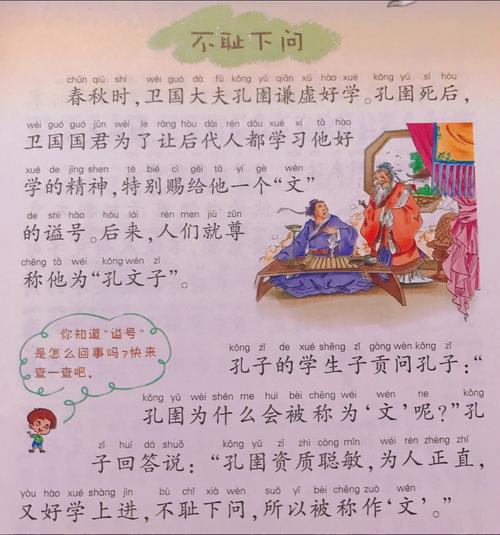 不耻下问
chūn qiū shí wèi guó dà fū kǒng yǔ qiān xū hào xué kǒng yǔ sǐ hòu
春秋时，卫国大夫孔圉谦虚好学。孔圉死后，
wèi guó guó jūn wèi le ràng hòu dài rén dōu xué xí tā hào
卫国国君为了让后代人都学习他好
xué de jīng shen tè bié cì gěi tā yí gè wén
学的精神，特别赐给他一个“文”
de shì hào hòu lái rén men jiù zūn
的谥号。后来，人们就尊
chēng tā wéi kǒng wén zǐ
称他为“孔文子”。
你知道“谥号”
是怎么回事吗？快来
查一查吧。
kǒng zǐ de xué shēng zǐ gòng wèn kǒng zǐ
孔子的学生子贡问孔子：“
kǒng yǔ wèi shén me huì bèi chēng wéi wén ne kǒng
孔圉为什么会被称为‘文’呢？”孔
zǐ huí dá shuō kǒng yǔ zī zhì cōng mǐn wéi rén zhèng zhí
子回答说：“孔圉资质聪敏，为人正直，
yòu hào xué shàng jìn bù chǐ xià wèn suǒ yǐ bèi chēng zuò wén
又好学上进，不耻下问，所以被称作‘文’。”